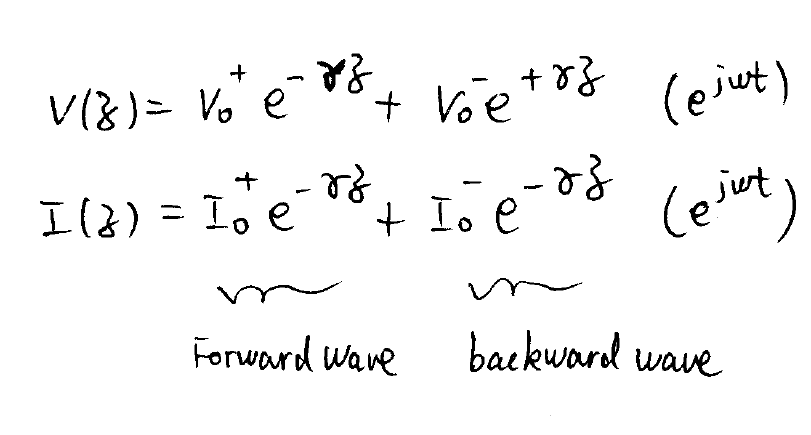 V(z) = V₀⁺ e^{-γz} + V₀⁻ e^{+γz} (e^{jωt})
I(z) = I₀⁺ e^{-γz} + I₀⁻ e^{-γz} (e^{jωt})
Forward wave backward wave